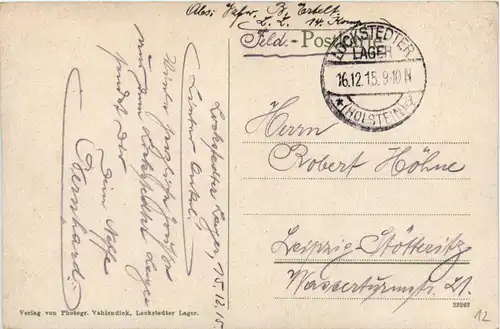 Abs: Jäger B. Ertelt
L. L. 14. Komp.
Feld.-Postkarte
LOCKSTEDTER
LAGER
16.12.15. 9-10 N
* (HOLSTEIN) *
Lockstedter Lager, 15.12.15
Lieber Onkel!
Viele
aus dem Lockstedter Lager
sendet Dir
Dein Neffe
Bernhard.
Herrn
Robert Höhne
Leipzig-Stötteritz
Wasserturmstr. 21.
Verlag von Photogr. Vahlendiek, Lockstedter Lager.
23263
12